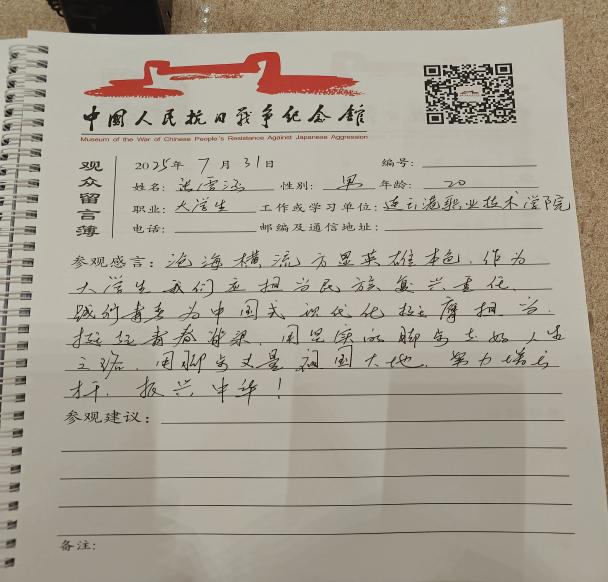 中国人民抗日战争纪念馆
Museum of the War of Chinese People's Resistance Against Japanese Aggression
观众留言簿
2025年 7月31日 编号:
姓名: 张雪涵 性别: 男 年龄: 20
职业: 大学生 工作或学习单位: 连云港职业技术学院
电话: 邮编及通信地址:
参观感言: 沧海横流方显英雄本色,作为
大学生我们应担当民族复兴重任,
践行青春为中国式现代化
挺起青春脊梁,用坚实的脚步走好人生
之路,用脚步丈量祖国大地,努力
振兴中华!
参观建议:
备注: